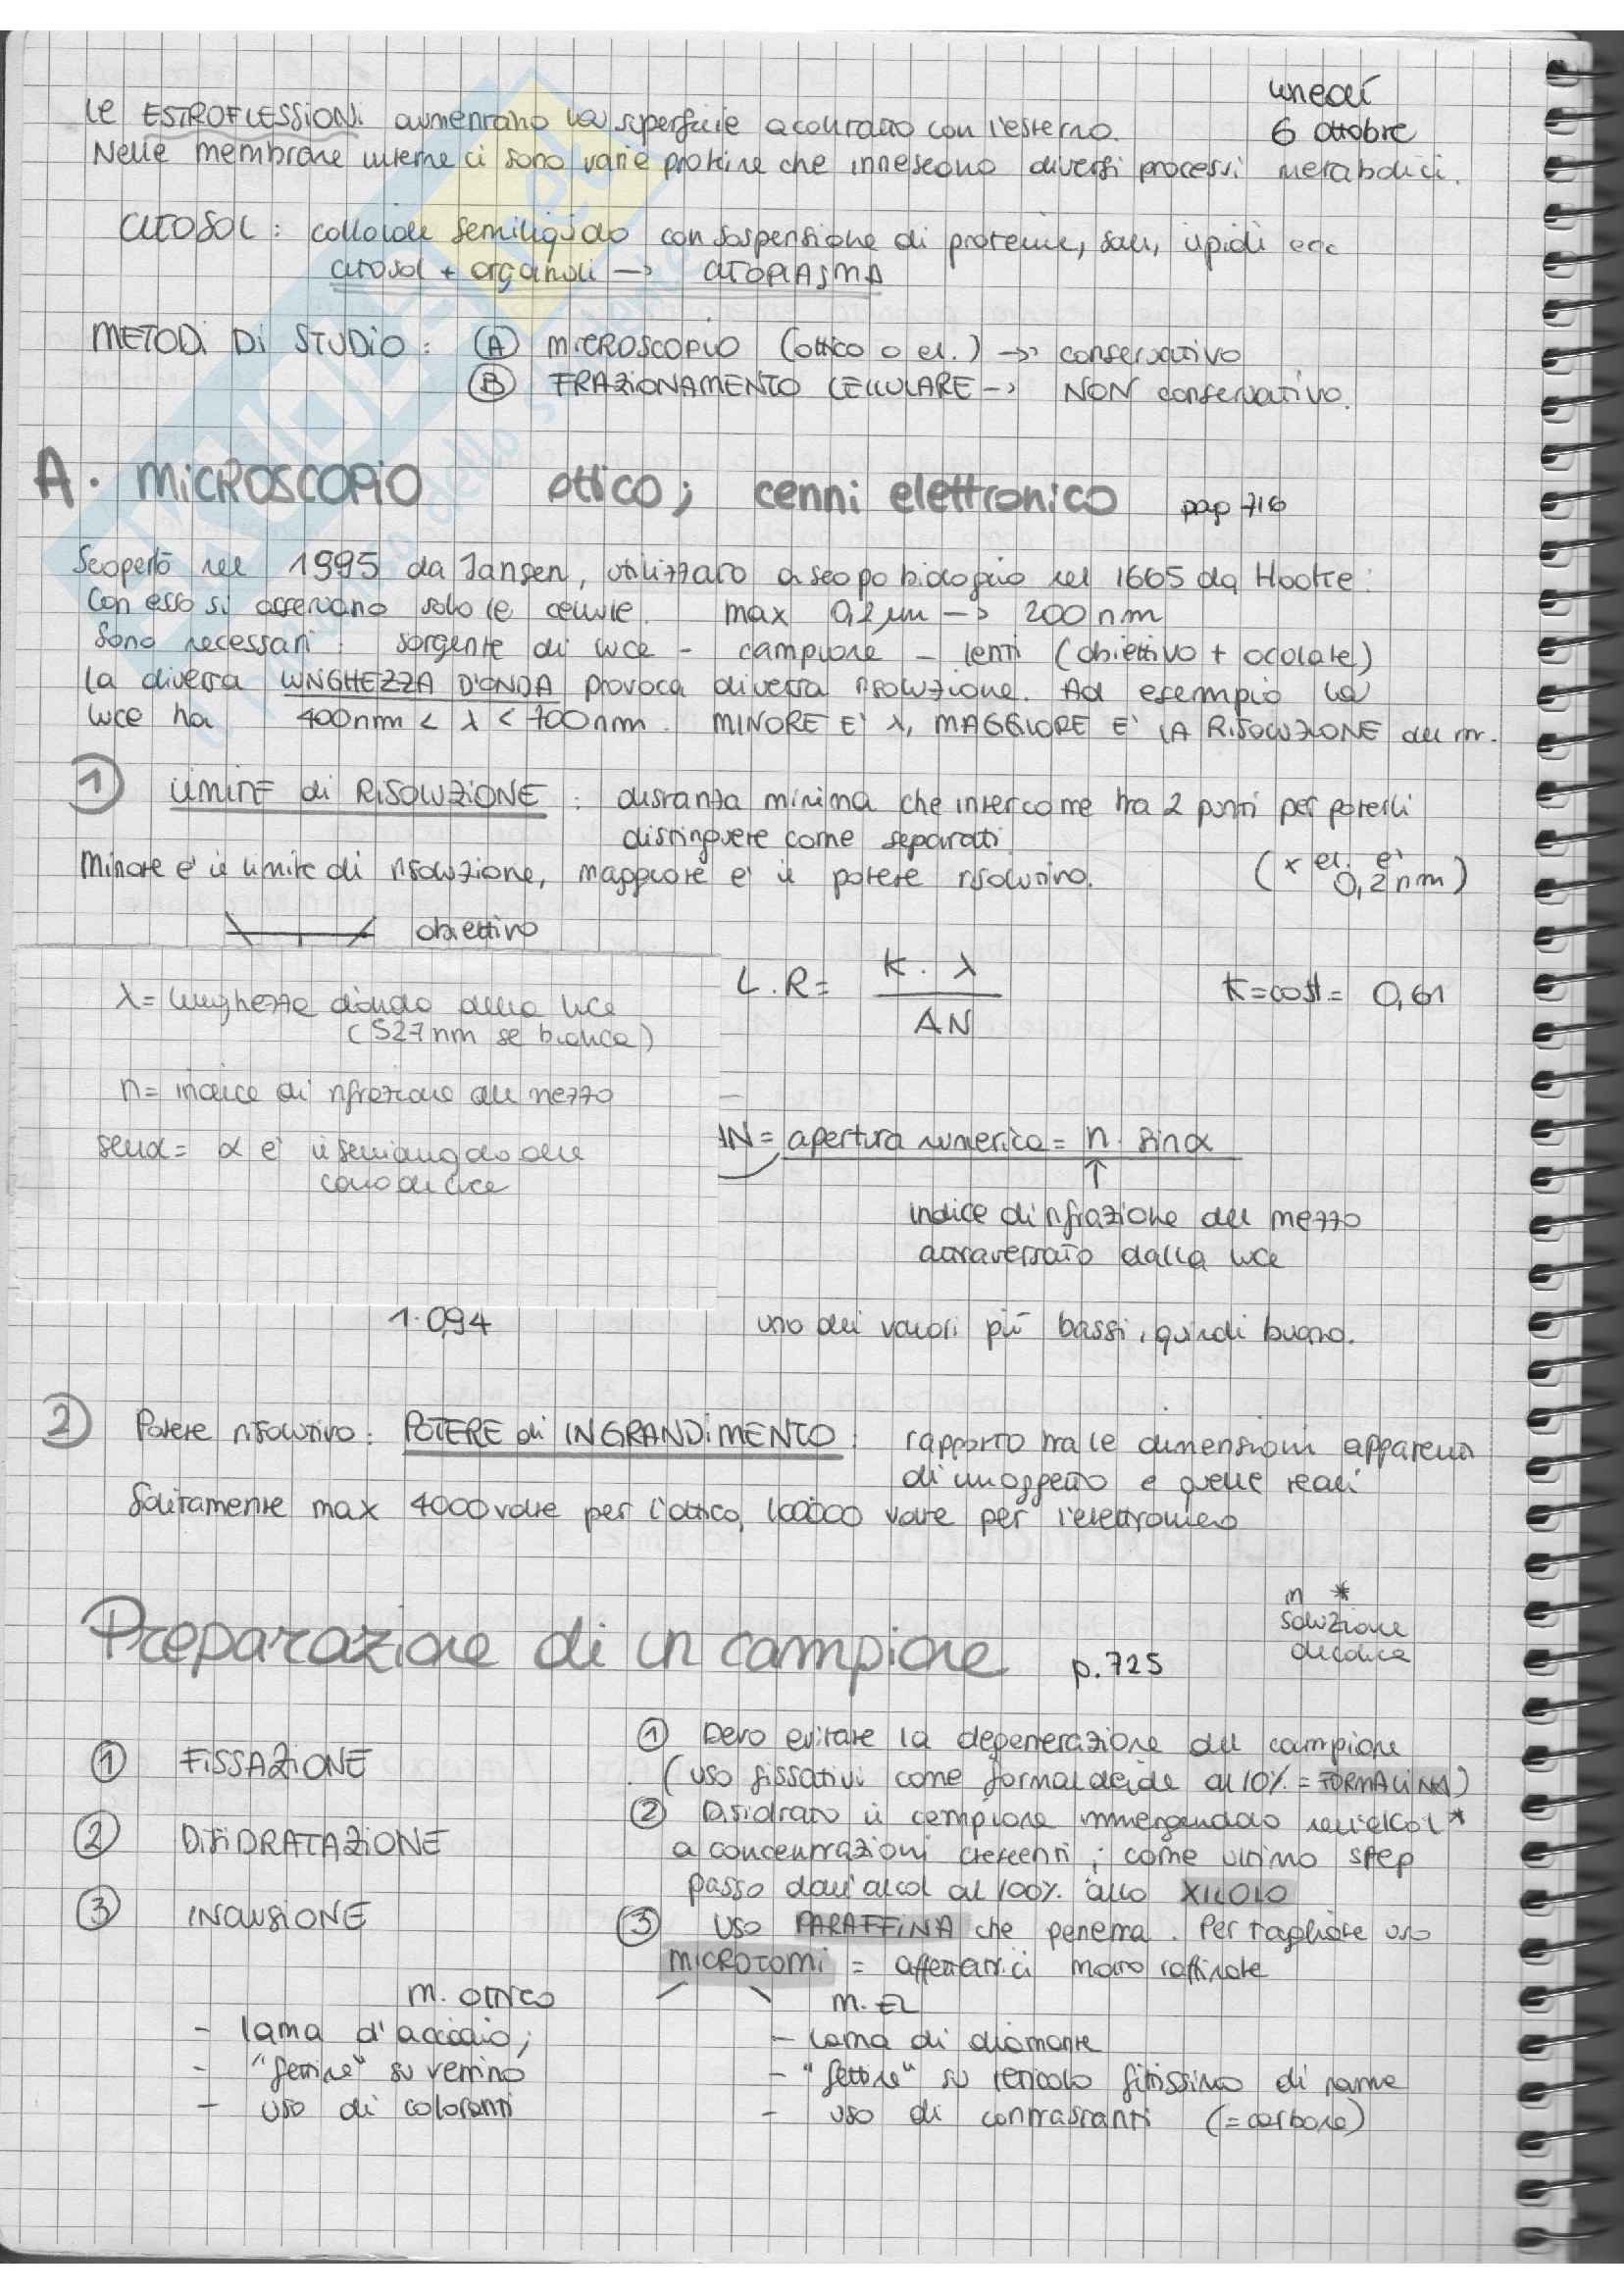 lunedì
6 ottobre
Le ESTROFLESSIONI aumentano la superficie a contatto con l'esterno.
Nelle membrane interne ci sono varie proteine che innescano diversi processi metabolici.
CITOSOL: colloide semiliquido con sospensione di proteine, sali, lipidi ecc
citosol + organuli → CITOPLASMA
METODI DI STUDIO: (A) MICROSCOPIO (ottico o el.) → conservativo
(B) FRAZIONAMENTO CELLULARE → NON conservativo.
A. MICROSCOPIO ottico; cenni elettronico pag 716
Scoperto nel 1995 da Jansen, utilizzato a scopo biologico nel 1665 da Hooke:
Con esso si osservano solo le cellule. max 0,2 µm → 200 nm
Sono necessari: sorgente di luce - campione - lenti (obiettivo + oculare)
La diversa LUNGHEZZA D'ONDA provoca diversa risoluzione. Ad esempio la
luce ha 400nm < λ < 700nm. MINORE E' λ, MAGGIORE E' LA RISOLUZIONE del m.
1 LIMITE di RISOLUZIONE: distanza minima che intercorre tra 2 punti per poterli
distinguere come separati.
Minore e' il limite di risoluzione, maggiore e' il potere risolutivo. (x el. e' 0,2 nm)
obiettivo
L.R = K. λ / AN K=cost= 0,61
λ= lunghezza d'onda della luce
(527nm se bianca)
n= indice di rifrazione del mezzo
senα= α e' il semiangolo del
cono di luce
AN = apertura numerica = n. sinα
↑
indice di rifrazione del mezzo
attraversato dalla luce
1.094 uno dei valori più bassi, quindi buono.
2 Potere risolutivo: POTERE di INGRANDIMENTO: rapporto tra le dimensioni apparenti
di un oggetto e quelle reali
Solitamente max 4000 volte per l'ottico, 100000 volte per l'elettronico
Preparazione di un campione p.725
* in
soluzione
alcolica
1 FISSAZIONE
2 DISIDRATAZIONE
3 INCLUSIONE
1 Devo evitare la degenerazione del campione
(uso fissativi come formaldeide al 10% = FORMALINA)
2 Disidrato il campione immergendolo nell'alcol *
a concentrazioni crescenti; come ultimo step
passo dall'alcol al 100% allo XILOLO
3 Uso PARAFFINA che penetra. Per tagliare uso
MICROTOMI = affettatrici molto raffinate
m. ottico
- lama d'acciaio;
- "fettine" su vetrino
- uso di coloranti
m. EL
- lama di diamante
- "fettine" su reticolo fittissimo di rame
- uso di contrastanti (=carbone)